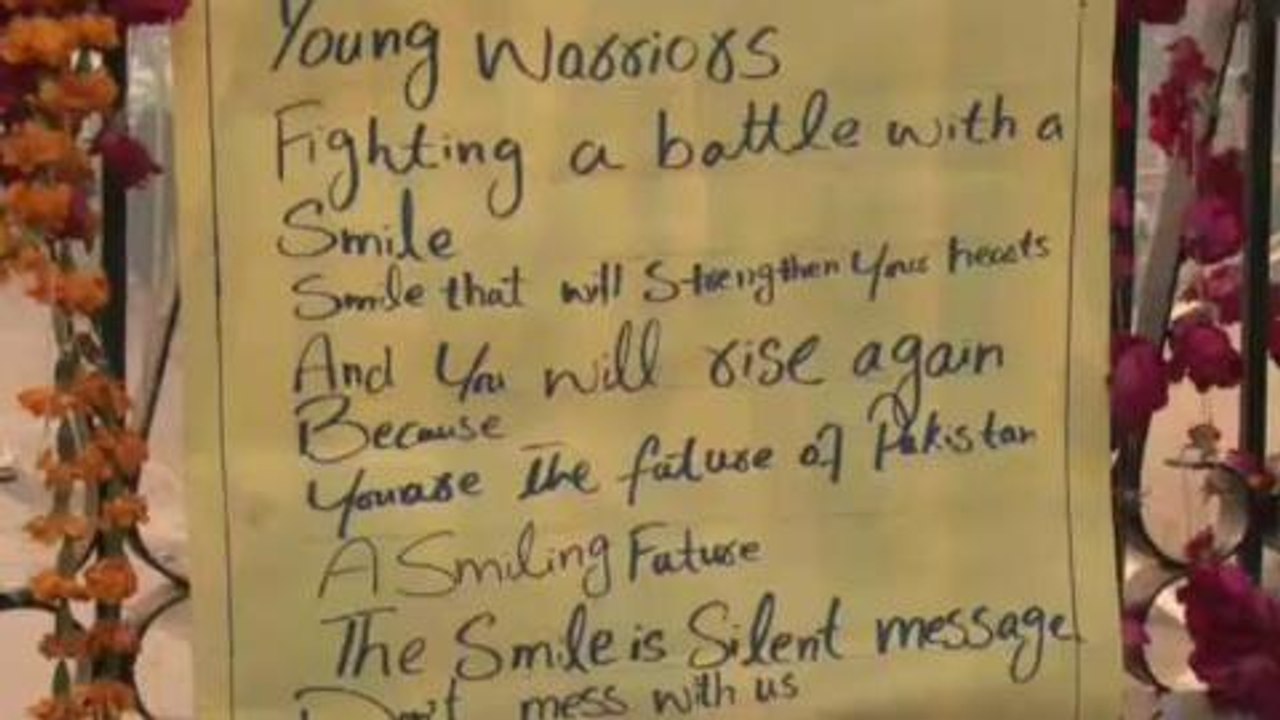 Young Warriors
Fighting a battle with a
Smile
Smile that will Strengthen Your hearts
And You will rise again
Because
You are the future of Pakistan
A Smiling Future
The Smile is Silent message
Don't mess with us